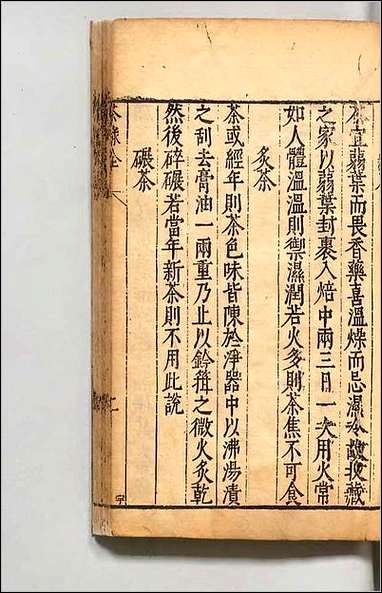 茶宜蒻葉而畏香藥喜溫燥而忌濕冷故收藏
之家以蒻葉封裹入焙中兩三日一次用火常
如人體溫溫則禦濕潤若火多則茶焦不可食
炙茶
茶或經年則茶色味皆陳於淨器中以沸湯漬
之刮去膏油一兩重乃止以鈐箝之微火炙乾
然後碎碾若當年新茶則不用此說
碾茶
茶錄全